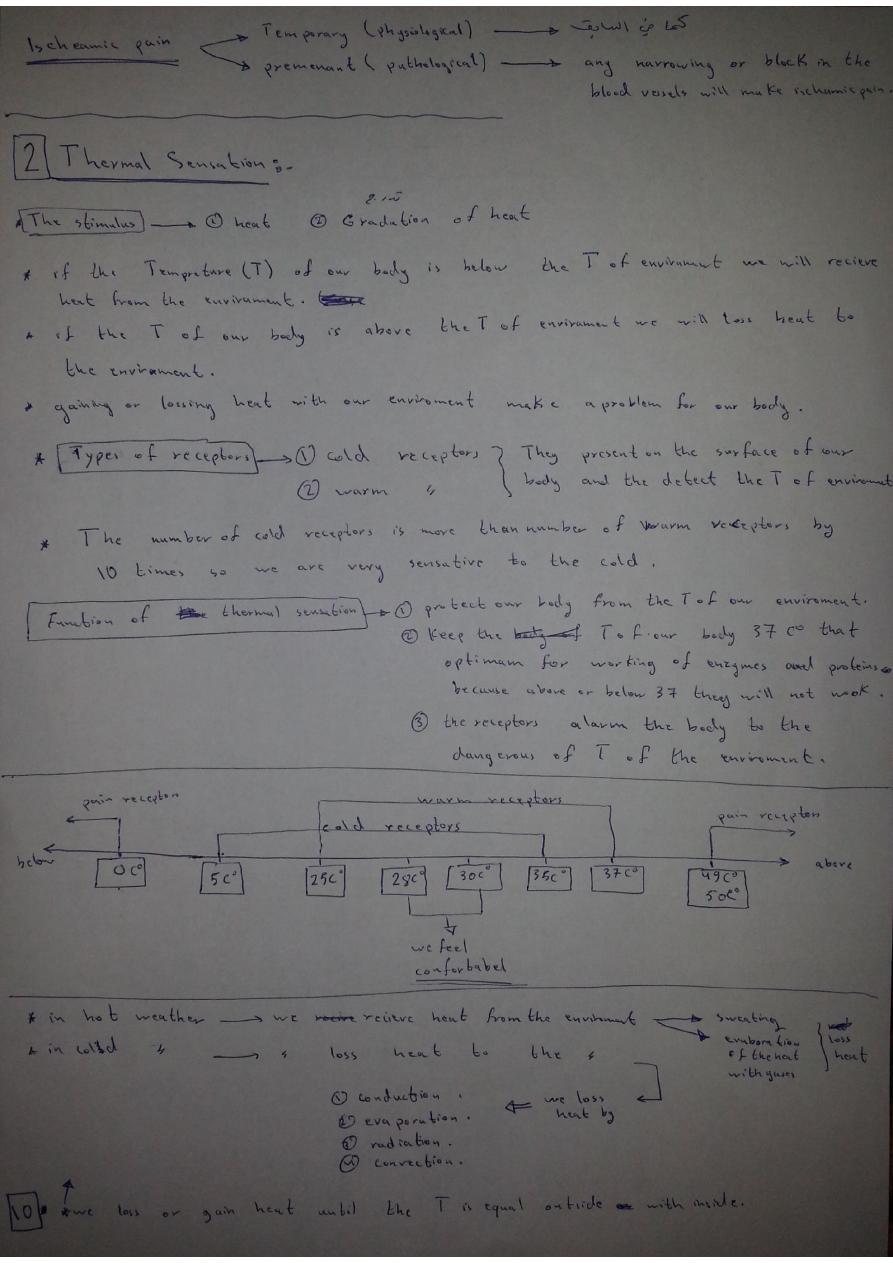 Ischeamic pain
Temporary (physiological) → كما في السابق
premenant (puthological) → any narrowing or block in the
blood vessels will make ischumic pain.
2 Thermal Sensation :-
* The stimulus → ① heat ② Gradution of heat
* if the Temprature (T) of our body is below the T of envirument we will recieve
heat from the envirument.
* if the T of our body is above the T of envirament we will loss heat to
the envirament.
* gaining or lossing heat with our enviroment make a problem for our body.
* Types of receptors → ① cold receptors } They present on the surface of our
② warm " body and the detect the T of enviroment
* The number of cold receptors is more than number of warm receptors by
10 times so we are very sensative to the cold.
Function of thermal sensation → ① protect our body from the T of our enviroment.
② Keep the T of our body 37 C° that
optimam for working of enzymes and proteins
because above or below 37 they will not wook.
③ the receptors alarm the body to the
dangerous of T of the enviroment.
pain receptors
warm receptors
pain receptors
cold receptors
below
above
0C°
5C°
25C°
28C°
30C°
35C°
37C°
49C°
50C°
we feel
confortabel
* in hot weather → we recieve heat from the enviroment → sweating
evaboration
of the heat
with gases
loss
heat
* in cold " → " loss heat to the "
we loss
heat by
① conduction.
② evaporation.
③ radiation.
④ convection.
10 * we loss or gain heat until the T is equal outside with inside.